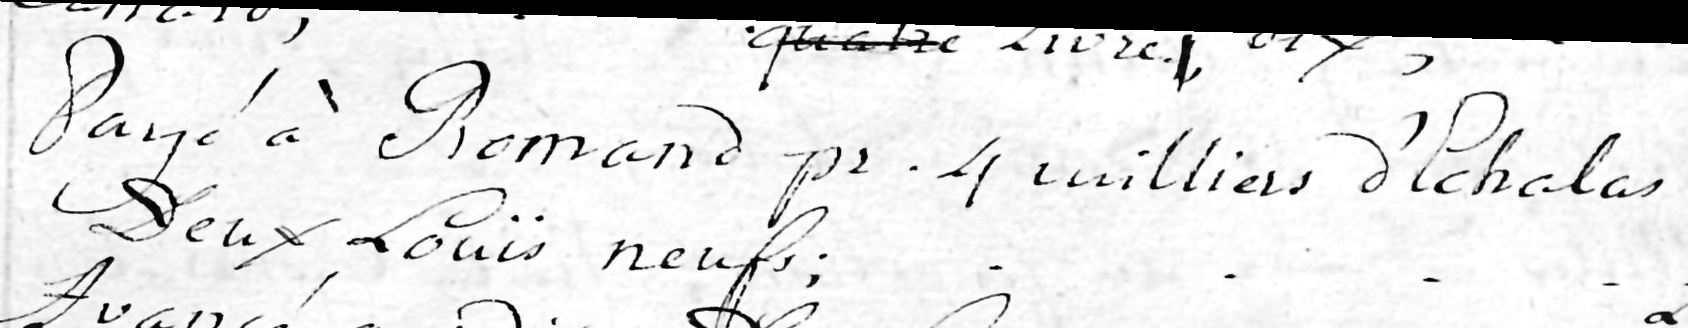 quatre Livres, dix,
Payé à Romand pr. 4 milliers d'Echalas
Deux Louïs neufs;
Avancé